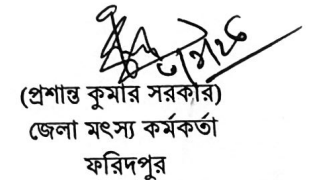 (প্রশান্ত কুমার সরকার)
জেলা মৎস্য কর্মকর্তা
ফরিদপুর